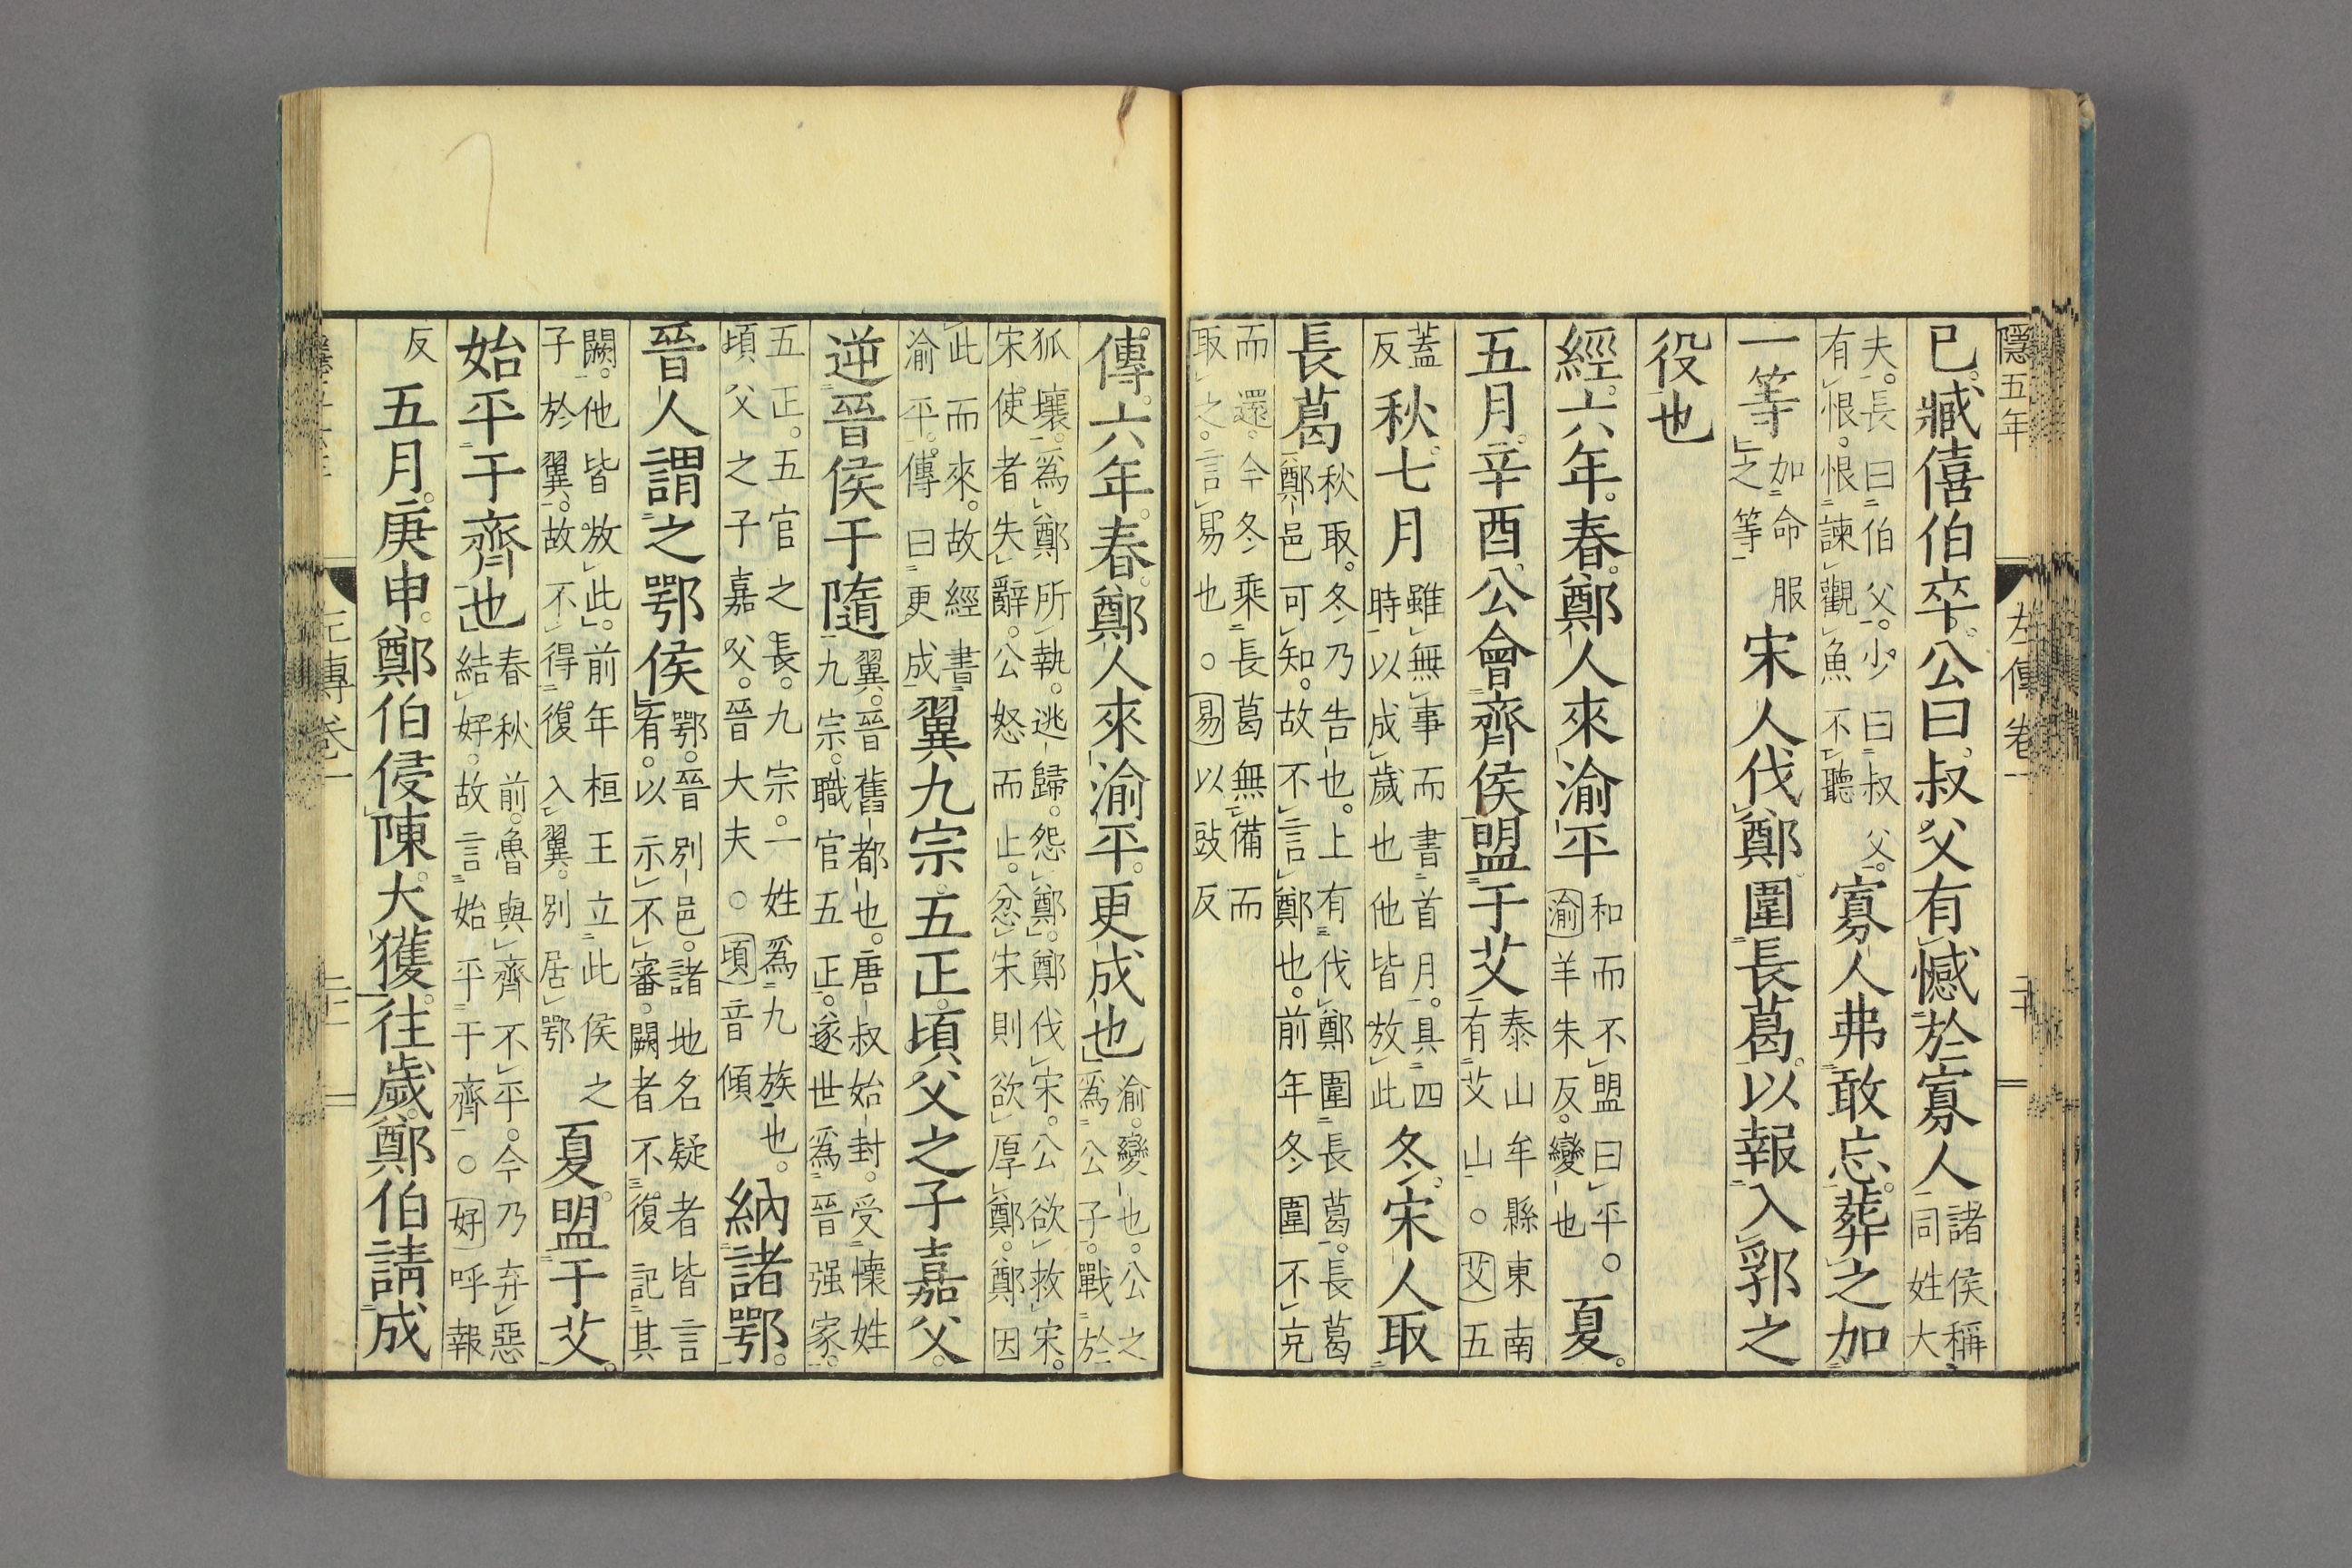 隱五年
左傳卷一
二十
已。臧僖伯卒。公曰。叔父有憾於寡人諸侯稱
同姓大
夫。長曰伯父。少曰叔父。
有恨。恨諫觀魚不聽寡人弗敢忘。葬之加
一等加命服
之等宋人伐鄭圍長葛。以報入郛之
役也
經。六年。春。鄭人來渝平和而不盟曰平。○
渝羊朱反。變也夏。
五月。辛酉。公會齊侯盟于艾泰山牟縣東南
有艾山。○艾五
蓋
反秋。七月雖無事而書首月。具四
時以成歲也他皆放此冬。宋人取
長葛秋取。冬乃告也。上有伐鄭圍長葛。長葛
鄭邑可知。故不言鄭也。前年冬圍不克
而還。今冬乘長葛無備而
取之。言易也。○易以豉反
傳。六年。春。鄭人來渝平。更成也渝。變也。公之
爲公子。戰於
狐壤。爲鄭所執。逃歸。怨鄭。鄭伐宋。公欲救宋。
宋使者失辭。公怒而止。忿宋則欲厚鄭。鄭因
此而來。故經書
渝平。傳曰更成翼九宗。五正。頃父之子嘉父。
逆晉侯于隨翼。晉舊都也。唐叔始封。受懷姓
九宗。職官五正。遂世爲晉强家。
五正。五官之長。九宗。一姓爲九族也。
頃父之子嘉父。晉大夫○頃音傾納諸鄂。
晉人謂之鄂侯鄂。晉別邑。諸地名疑者皆言
有。以示不審。闕者不復記其
闕。他皆放此。前年桓王立此侯之
子於翼。故不得復入翼。別居鄂夏。盟于艾。
始平于齊也春秋前。魯與齊不平。今乃弃惡
結好。故言始平于齊。○好呼報
反五月。庚申。鄭伯侵陳。大獲。往歲。鄭伯請成